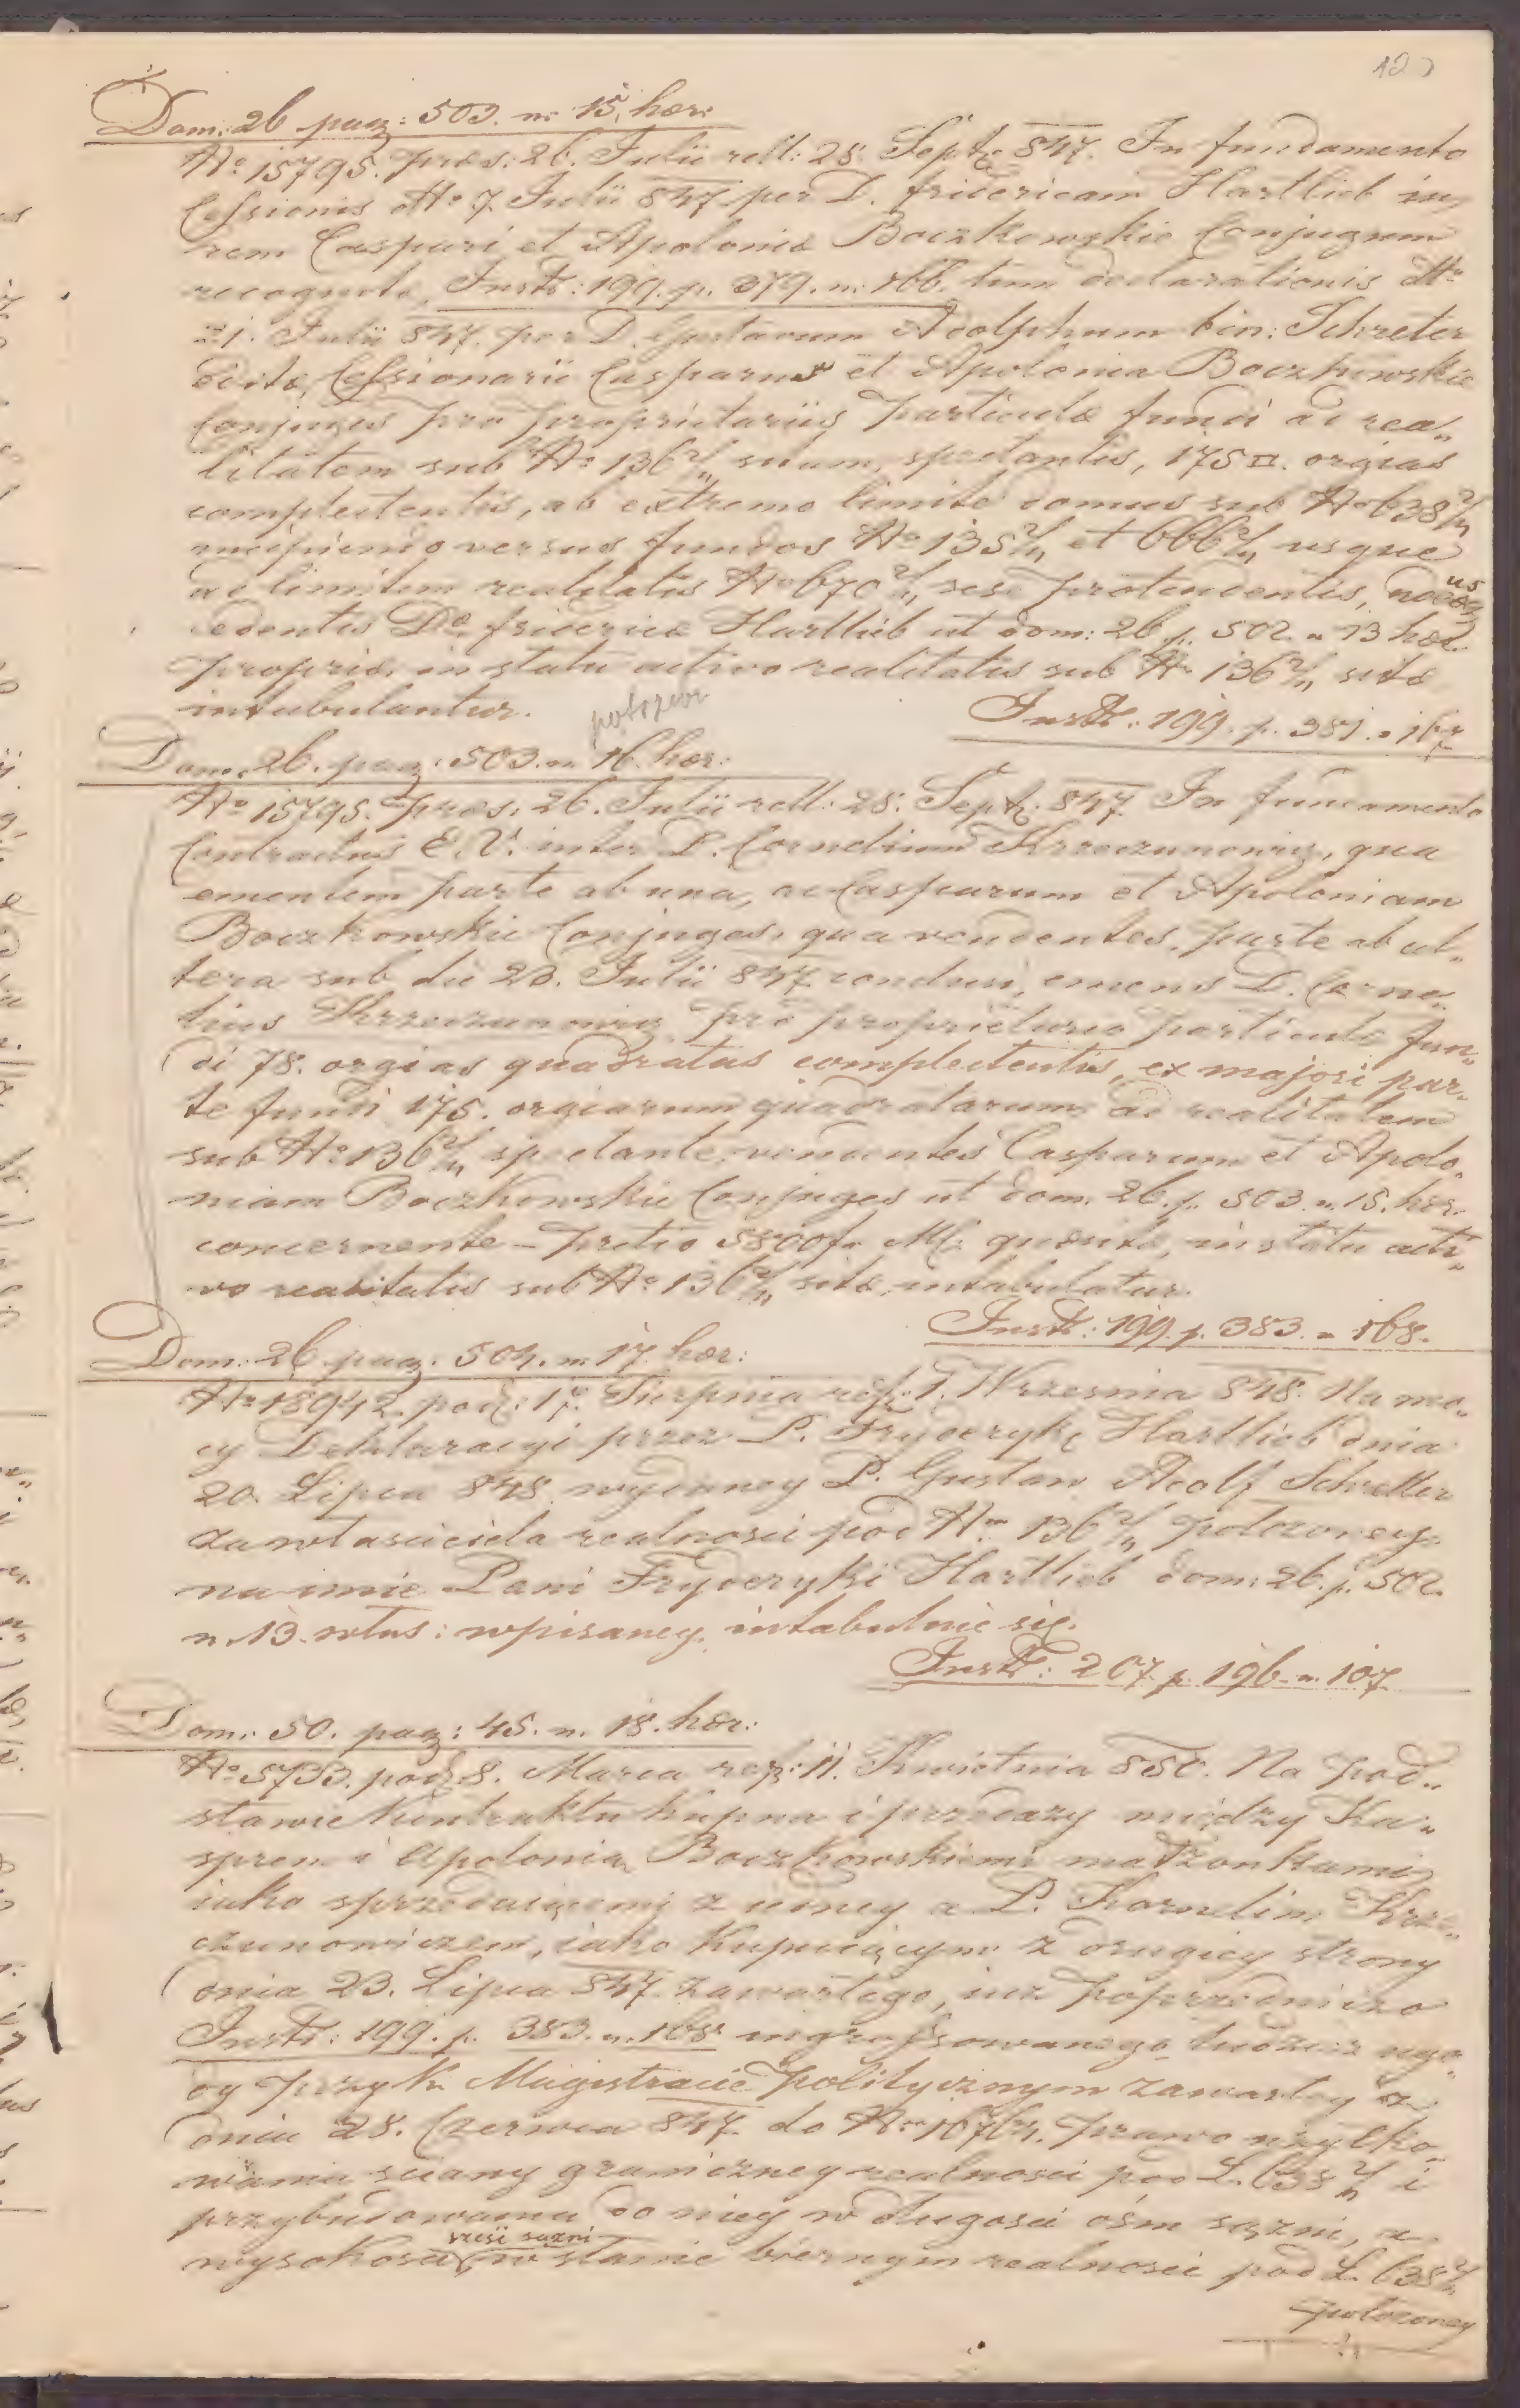 Dom: 26 pag: 503. n. 15. hær:
No 15795. præs: 26. Julii rell: 28. Sept. 847. In fundamento
Cessionis dtto 7. Julii 847. per D. fridericam Hartlieb in
rem Caspari et Apoloniæ Boczkowskie Conjugum
recognitæ, Instr: 199. p. 379. n. 166. tum declarationis dtto
21. Julii 847. per D. Gustavum Adolphum bin: Schreter
editæ, Cessionarii Casparus et Apolonia Boczkowskie
Conjuges pro proprietariis particulæ fundi ad rea„
litatem sub No 136 2/4 sitam, spectantis, 175 □. orgias
complectentis, ab extremo limite domus sub No 638 2/4
incipiendo versus fundos No 135 2/4 et 666 2/4 usque
ad limitem realitatis No 670 2/4 sese protendentis,
cedentis Dæ fridericæ Hartlieb ut dom: 26. p. 502. n 13 hær.
propriæ, in statu activo realitatis sub No 136 2/4 sitæ
intabulantur.
Instr: 199. p. 381. n 167
Dom. 26. pag: 503. n. 16. hær:
No 15795. præs: 26. Julii rell: 28. Sept. 847. In fundamento
Contractus E. V. inter D. Cornelium Krzeczunowicz, qua
ementem parte ab una, ac Casparum et Apoloniam
Boczkowskie Conjuges, qua vendentes, parte ab al„
tera sub die 23. Julii 847. conclusi, emens D. Corne„
lius Krzeczunowicz pro proprietario particulæ fun„
di 78. orgias quadratas complectentis, ex majori par„
te fundi 175. orgiarum quadratarum ad realitatem
sub No 136 2/4 spectante, vendentes Casparum et Apolo„
niam Boczkowskie Conjuges ut dom. 26. p. 503. n. 15. hær.
concernente – pretio 5800 fr. M. quæsitæ, in statu acti„
vo realitatis sub No 136 2/4 sitæ, intabulatur.
Instr: 199. p. 383. n 168.
Dom: 26. pag. 504. n. 17. hær:
No 18942. pod: 17. Sierpnia rez: 1. Wrzesnia 848. Na mo„
cy Deklaracyi przez P. Fryderykę Hartlieb dnia
20. Lipca 848 wydanéy P. Gustaw Adolf Schretter
za własciciela realnosci pod No 136 2/4 położoney
na imie Pani Fryderyki Hartlieb dom: 26. p. 502.
n. 13. włas: wpisaney, intabuluie się.
Instr: 207 p. 196. n. 107
Dom: 50. pag: 45. n. 18. hær:
No 5733. pod: 8. Marca rez: 11. Kwietnia 850. Na pod„
stawie kontraktu kupna i przedazy między Ka„
sprem i Apolonią Boczkowskiemi małżonkami
iako sprzedaiącemi z iedney a P. Kornelim Krze„
czunowiczem, iako kupuiącym z drugiey strony
dnia 23. Lipca 847. zawartego, iuż poprzedniczo
Instr: 199. p. 383. n. 168 ingrossowanego, tudzież ugo„
dy przy k. Magistracie politycznym zawartey z
dnia 28. Czerwca 847. do No 16764. prawo użytko„
wania sciany graniczney realnosci pod L. 638 2/4 i
przybudowania do niey w długosci ośm sązni, a
wysokosci sześć sązni w stanie biernym realnosci pod L. 638 2/4
położoney